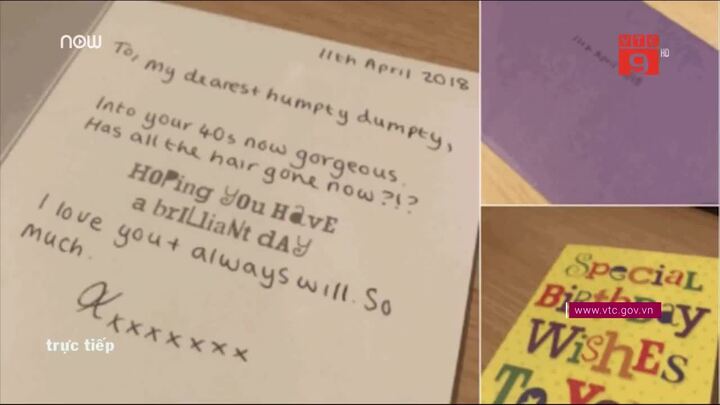 now
VTC
9
HD
11th April 2018
To, my dearest humpty dumpty,
Into your 40s now gorgeous.
Has all the hair gone now?!?
HOPing YOU HavE
a brILliaNt dAY
I love you + always will. So
much.
xxxxxxxx
11th April 2018
SpeciaL
BirthDay
WisHEs
To Yo
www.vtc.gov.vn
trực tiếp